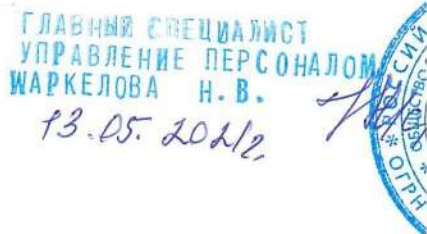 ГЛАВНЫЙ СПЕЦИАЛИСТ
УПРАВЛЕНИЕ ПЕРСОНАЛОМ
МАРКЕЛОВА Н.В.
13.05.2021г.
ОГРН